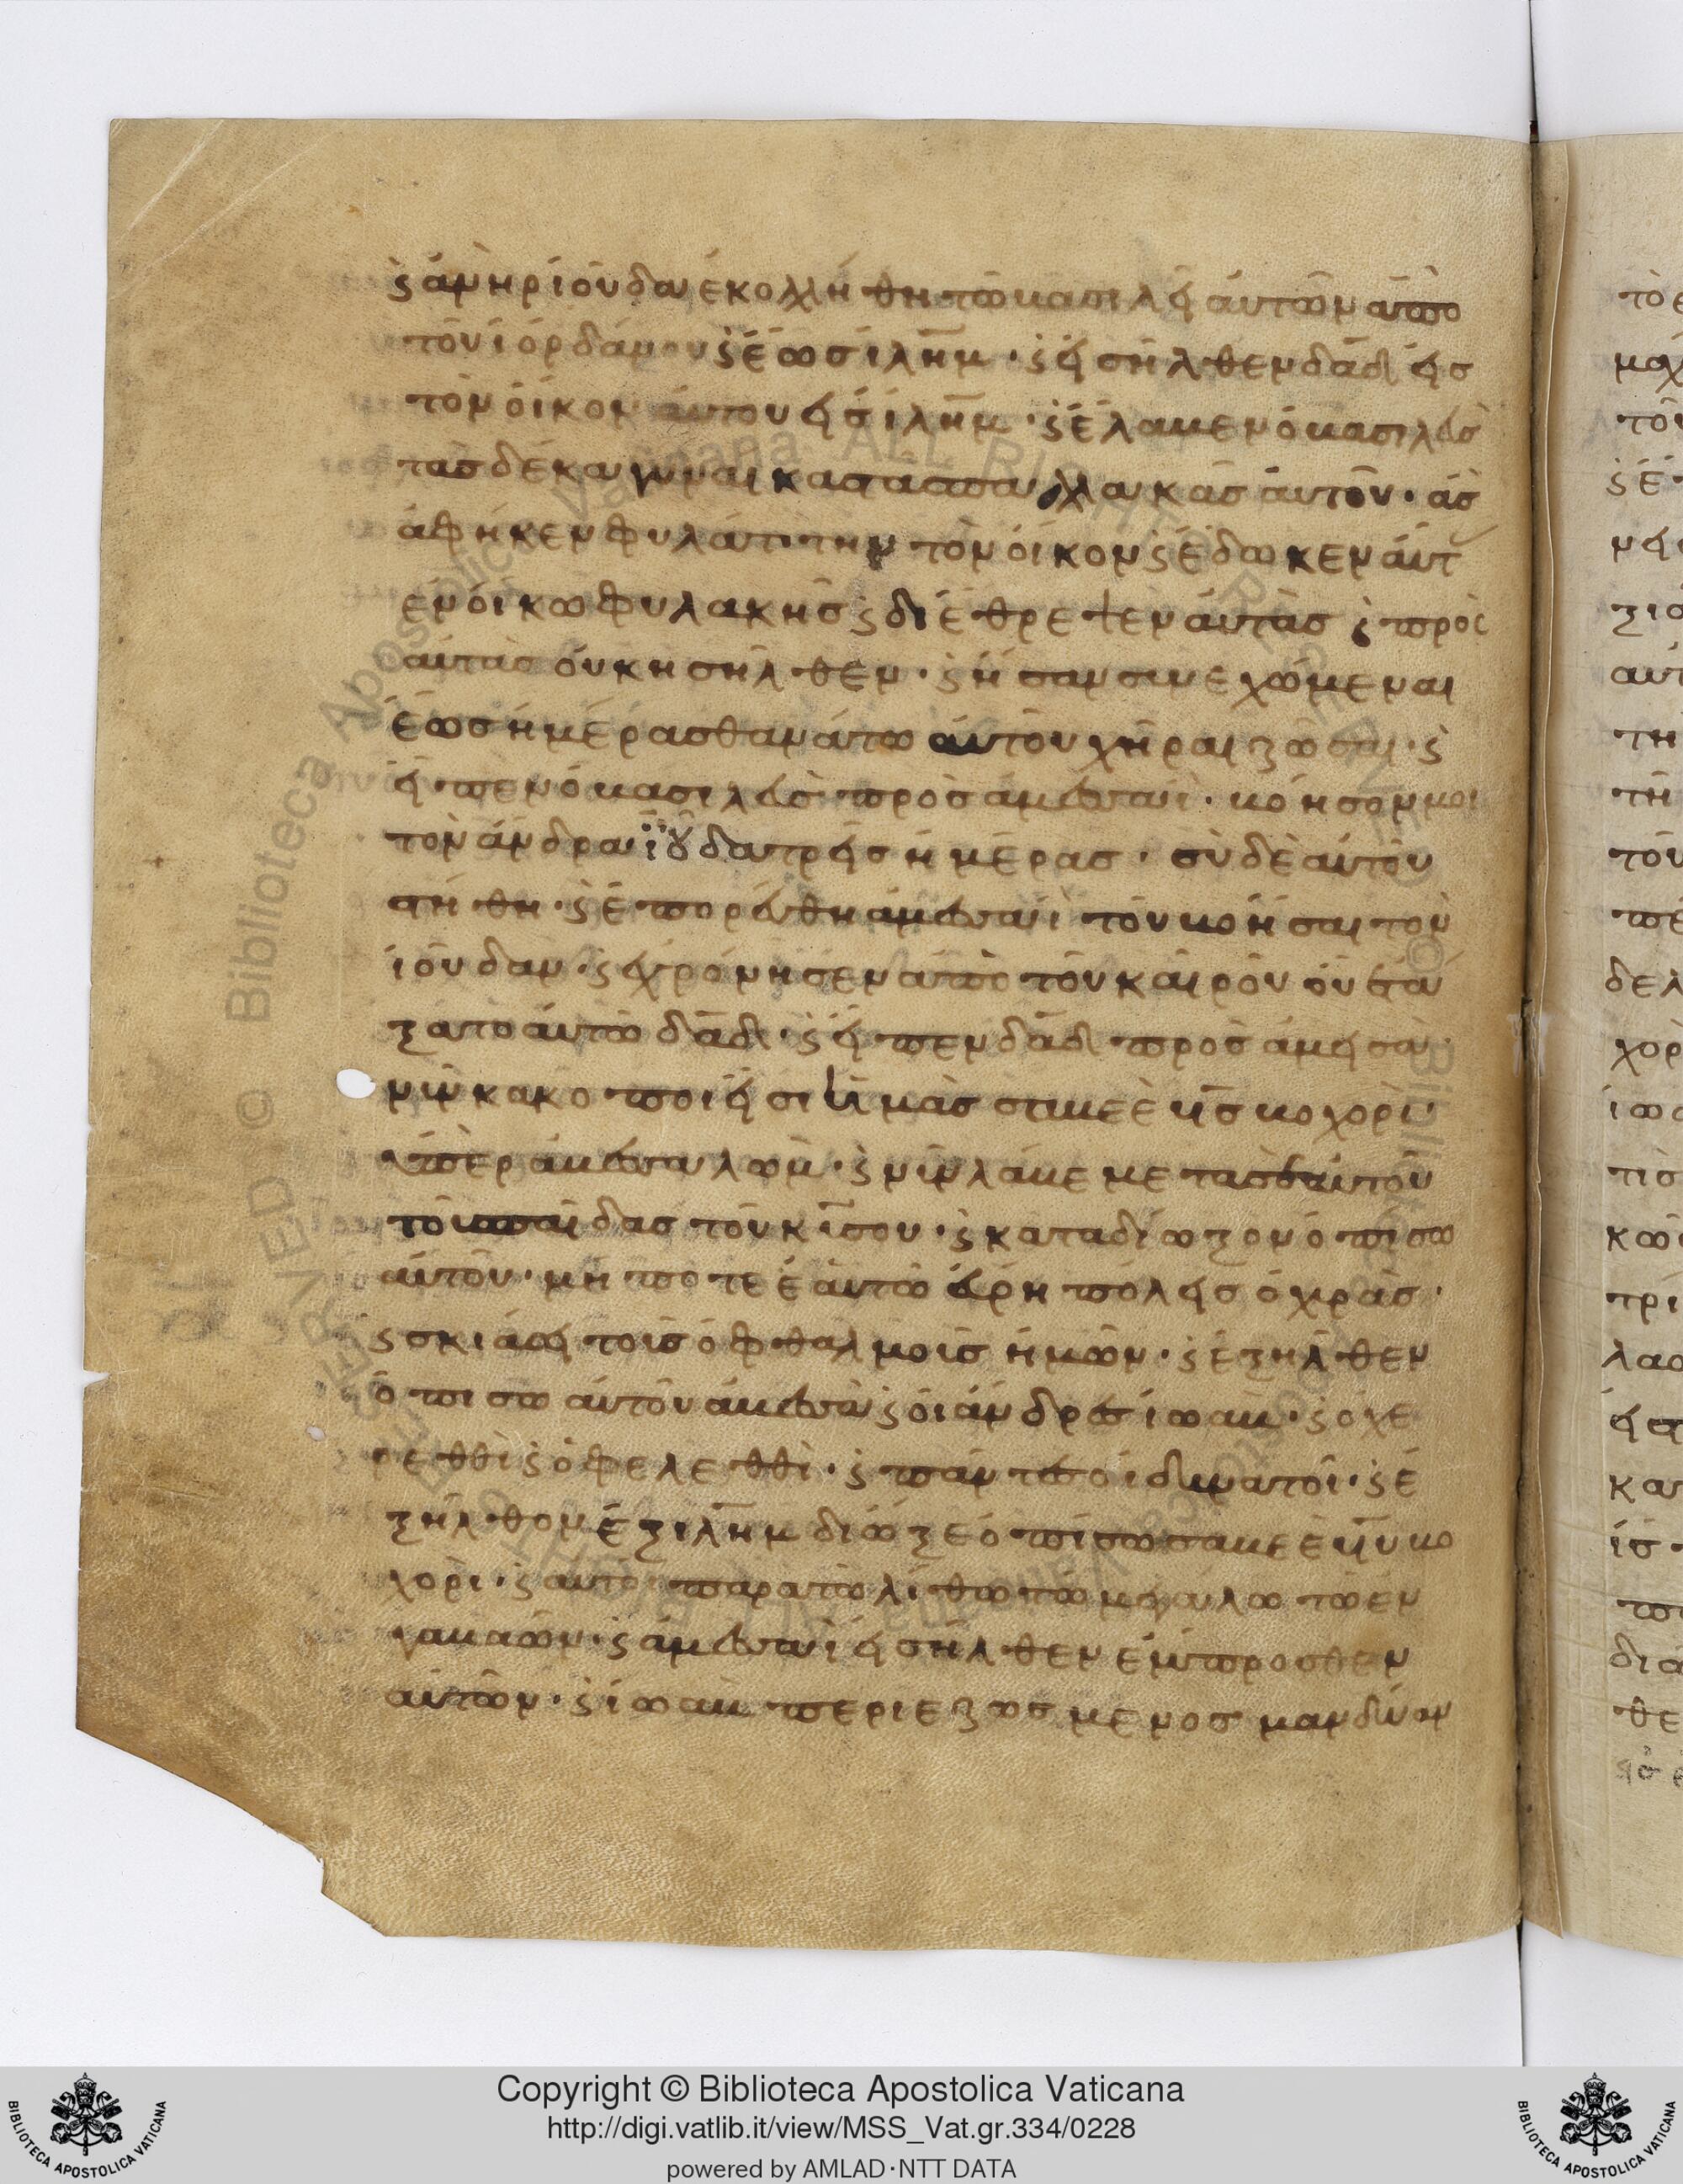 ϛ ἀνὴρ ἰούδα ἐκολλήθη τῶ βασιλεῖ ἀυτῶν ἀπὸ
τοῦ ἰόρδάνου ϛ ἕως ιλημ · ϛ ἐισῆλθεν δαδ ἐις
τὸν ὀίκον ἀυτου ἐις ιλημ · ϛ ἔλαβεν ὁ βασιλεὺς
τὰς δέκα γυναικας τας παλλακὰς ἀυτοῦ · ἁς
ἀφῆκεν φυλάττιτην τὸν ὀίκον ϛ ἔδωκεν ἀυτ
ἐν ὀίκω φυλακῆς ϛ διέθρεψεν ἀυτὰς ϛ πρὸς
ἀυτὰς ὀυκ ησηλθεν · ϛ ἦσαν σινεχώμεναι
ἕως ἡμέρας θανάτω ἀυτοῦ χῆραι ζῶσαι · ϛ
εἶπεν ὁ βασιλεὺς πρὸς ἀμεσσαὶ · βόησον μοι
τὸν ἄνδρα ἰοῦδα τρεῖς ἡμέρας · σὺ δὲ ἀυτοῦ
στήθη · ϛ ἐπορεύθη ἀμεσσαὶ τοῦ βοῆσαι τὸν
ἰοῦδαν · ϛ ἐχρόνησεν ἀπὸ τοῦ καιροῦ οὗ ἐτά
ξατο ἀυτῶ δαδ · ϛ εἶπεν δαδ πρὸς ἀμεσὰ ·
νῦν κακοποιήσι ὑμὰς σαβεὲ υς βοχορι
ὑπὲρ ἀβεσσαλωμ · ϛ νῦν λάβε με τασεαυτοῦ
τοὺς παῖδας τοῦ κισου · ϛ καταδίωξον ὀπίσω
ἀυτοῦ · μή ποτε ἑαυτῶ εὕρη πόλεις ὀχυρὰς ·
ϛ σκιάσει τοὺς ὀφθαλμοὺς ἡμῶν · ϛ ἐξῆλθεν
ὀπισω ἀυτοῦ ἀβεσσὰ ϛ ὁι ἄνδρες ἰωαβ · ϛ ὁ χε
ρεθθὶ ϛ ὁ φελεθθὶ · ϛ πάντες ὁι δυνατοὶ · ϛ ἐ
ξῆλθον ἐξ ιλημ διῶξε ὀπίσω σαβεὲ υυ βο
χορὶ · ϛ αυτοὶ παρὰ τῶ λίθω τῶ μεγάλω τῶ ἐν
γαβαῶν · ϛ ἀμεσσαὶ ἐισῆλθεν ἔμπροσθεν
ἀυτῶν · ϛ ἰωαβ περιεζωσμενος μανδύαν
Copyright © Biblioteca Apostolica Vaticana
http://digi.vatlib.it/view/MSS_Vat.gr.334/0228
powered by AMLAD·NTT DATA